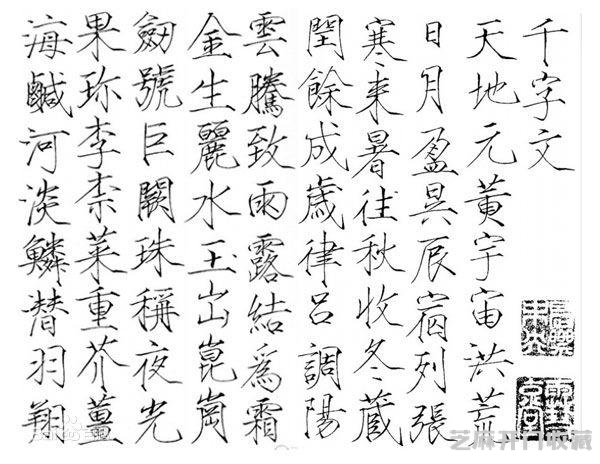 千字文
天地元黃宇宙洪荒
日月盈昃辰宿列張
寒来暑往秋收冬藏
閏餘成歲律呂調陽
雲騰致雨露結爲霜
金生麗水玉出崑崗
劒號巨闕珠稱夜光
果珍李柰菜重芥薑
海鹹河淡鱗潛羽翔
芝麻开门收藏